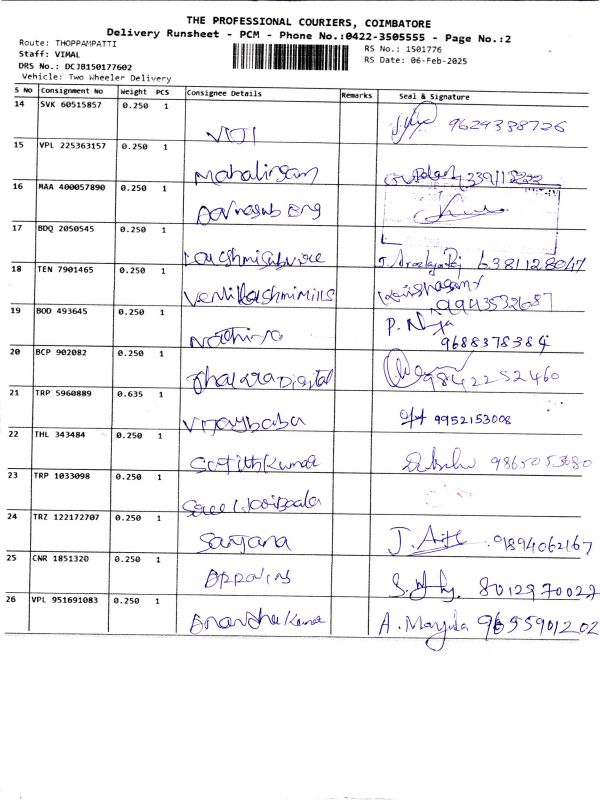 THE PROFESSIONAL COURIERS, COIMBATORE
Delivery Runsheet - PCM - Phone No.:0422-3505555 - Page No.:2
Route: THOPPAMPATTI
RS No.: 1501776
Staff: VIMAL
RS Date: 06-Feb-2025
DRS No.: DCJB150177602
Vehicle: Two Wheeler Delivery
S No Consignment No Weight PCS Consignee Details Remarks Seal & Signature
14 SVK 60515857 0.250 1 VIJI 9629338726
15 VPL 225363157 0.250 1 Mahalingam
16 MAA 400057890 0.250 1
17 BDQ 2050545 0.250 1 6381128047
18 TEN 7901465 0.250 1 9943532687
19 BOD 493645 0.250 1 P. 9688378384
20 BCP 902082 0.250 1 Digital 9842252460
21 TRP 5960889 0.635 1 Vijaybaba 9952153008
22 THL 343484 0.250 1 Satithkumar
23 TRP 1033098 0.250 1
24 TRZ 122172707 0.250 1 Sanjana J. 9894062167
25 CNR 1851320 0.250 1 S. 8012970027
26 VPL 951691083 0.250 1 Anandhakumar A. Manjula 9655901202